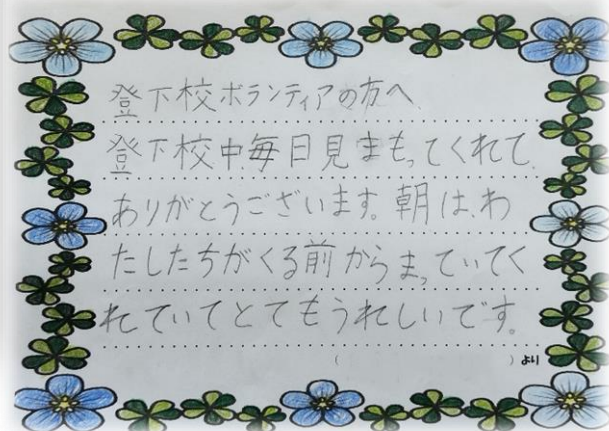 登下校ボランティアの方へ
登下校中、毎日見まもってくれて、
ありがとうございます。朝は、わ
たしたちがくる前からまっていてく
れていてとてもうれしいです。
(　　　)より